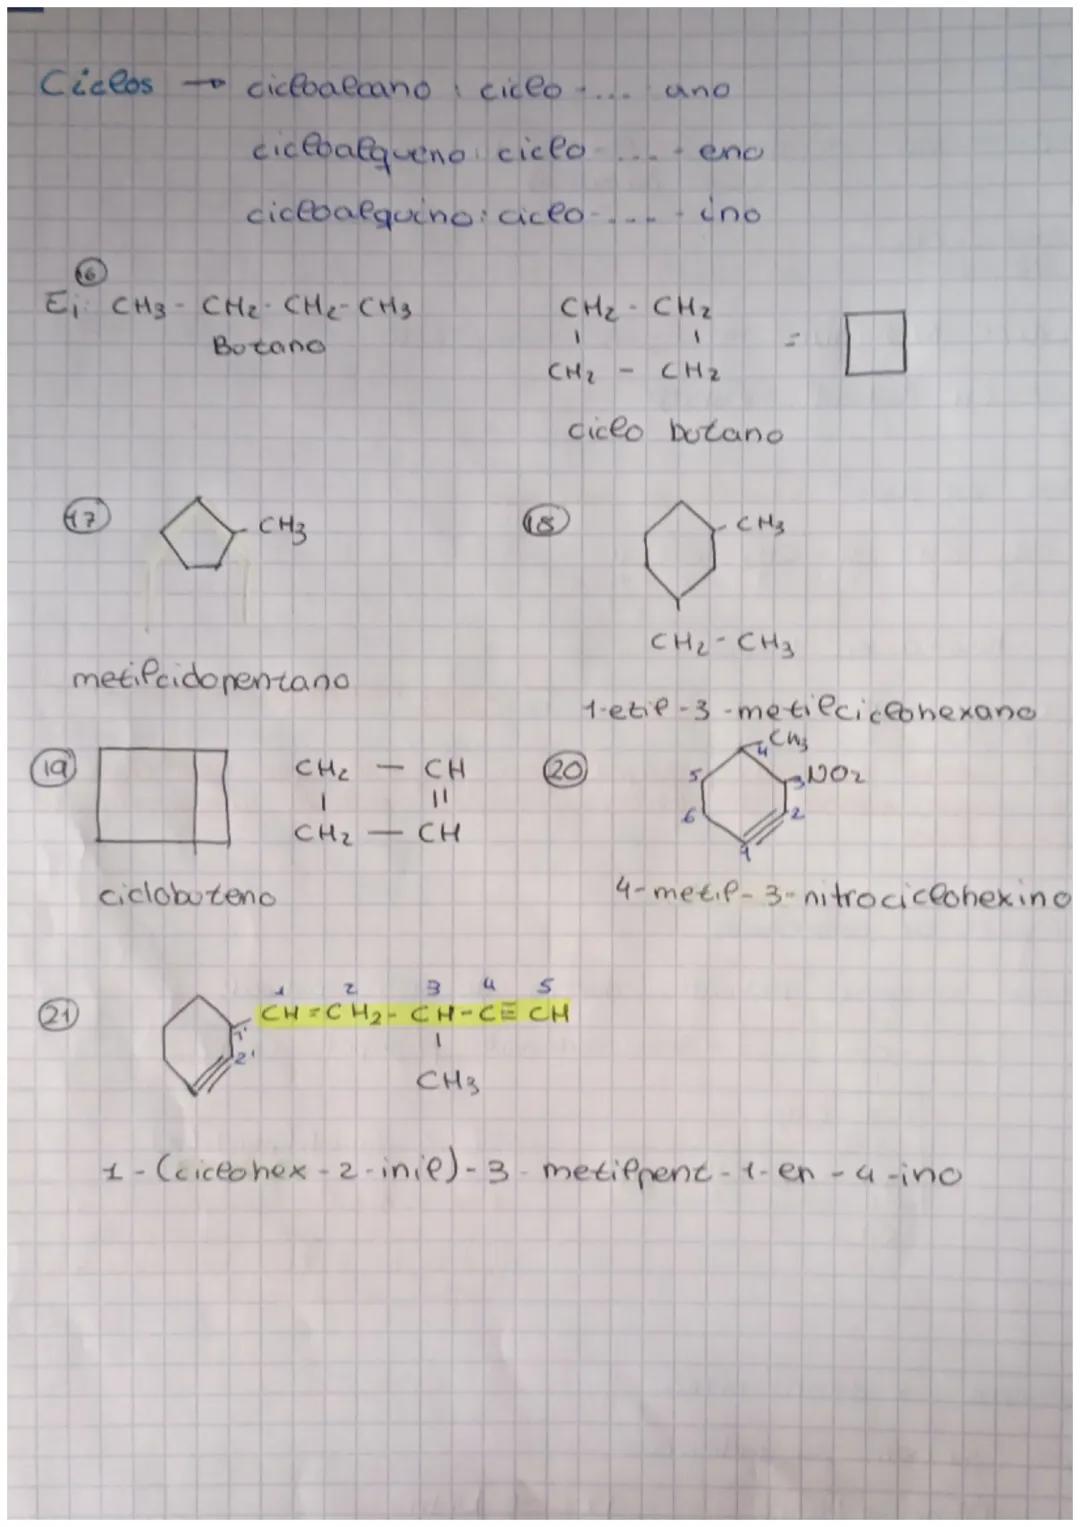 Ciclos → cicloalcano : ciclo -... ano
cicloalqueno: ciclo -... - eno
cicloalquino: ciclo -... - ino
16
Ej: CH3 - CH2 - CH2 - CH3
Botano
CH2 - CH2
CH2 - CH2
=
ciclo butano
17
CH3
metilciclopentano
18
CH3
CH2 - CH3
1-etil-3-metilciclohexano
19
CH2 — CH
CH2 — CH
ciclobuteno
20
CH3
NO2
4
5
3
6
2
1
4-metil-3-nitrociclohexino
21
1 2 3 4 5
CH=CH2-CH-C≡CH
1'
2'
CH3
1-(ciclohex-2-inil)-3-metilpent-1-en-4-ino